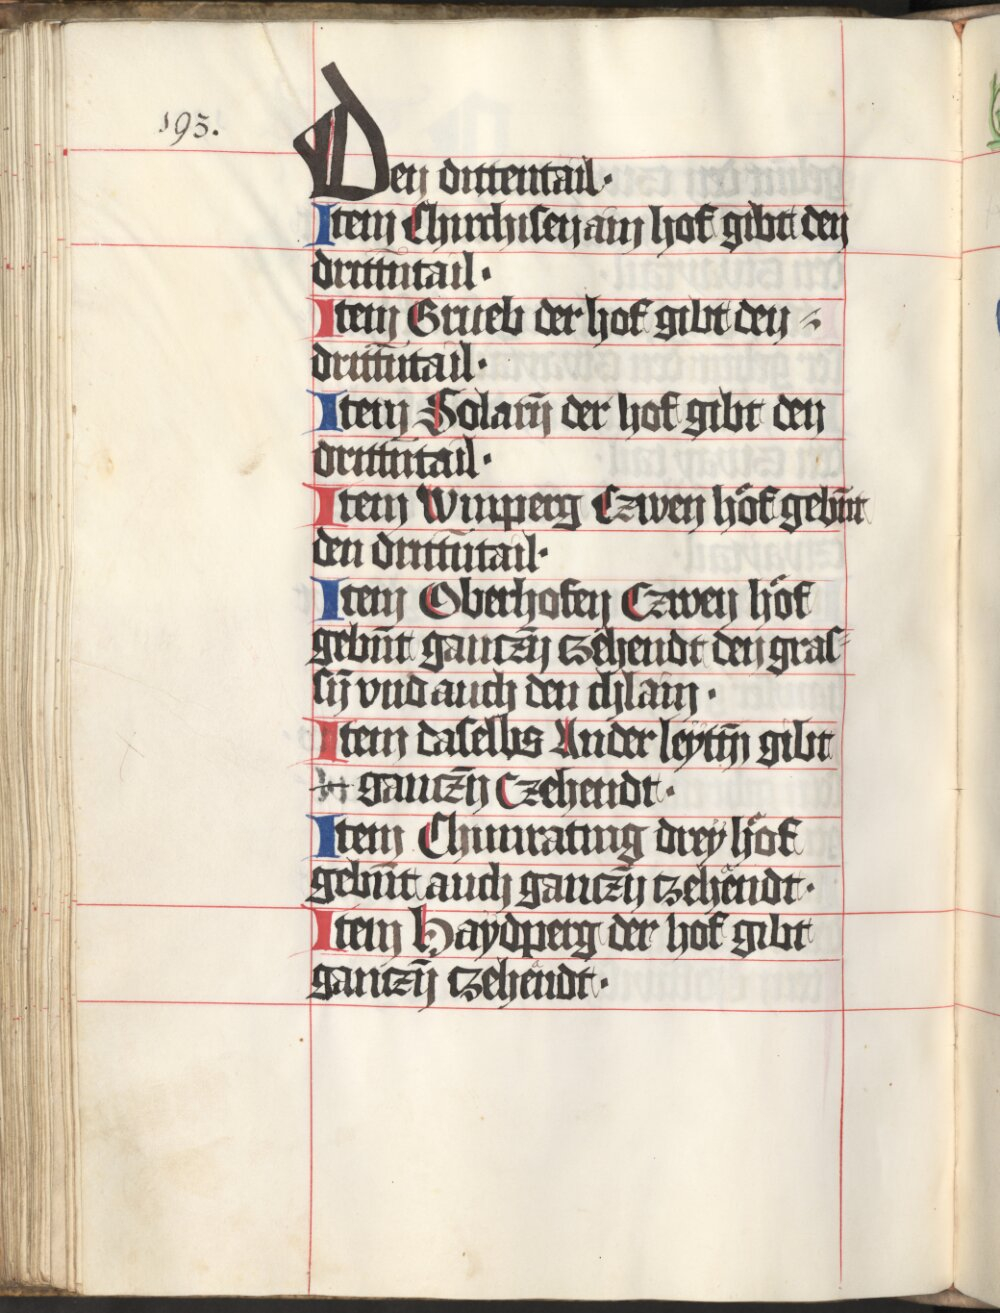 193.
Den dittentail·
Item Chirchisen ain hof gibt den
drittn̄tail·
Item Grueb der hof gibt den
drittn̄tail·
Item Solarn̄ der hof gibt den
drittn̄tail·
Item Winperg Czwen höf gebn̄t
den drittn̄tail·
Item Oberhofen Czwen höf
gebn̄t gantzn̄ tzehendt den gras-
sn̄ vnd auch den chlain·
Item daselbs Ander leyttn̄ gibt
gantzn̄ Czehendt·
Item Chunrating drey höf
gebn̄t auch gantzn̄ tzehendt·
Item Haydperg der hof gibt
gantzn̄ tzehendt·